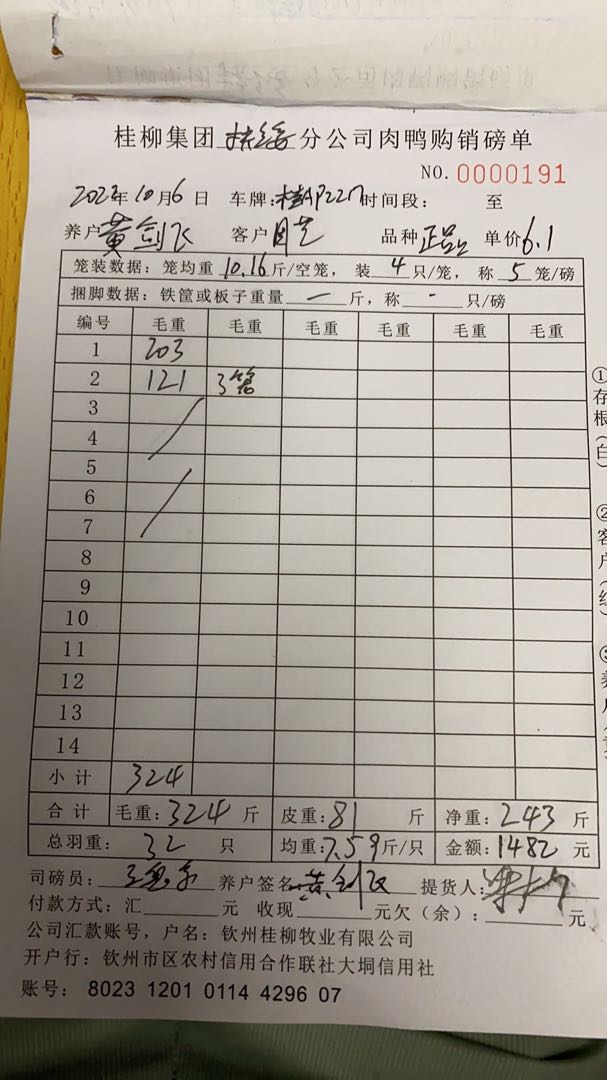 桂柳集团扶绥分公司肉鸭购销磅单
NO.0000191
10月6日 车牌: 时间段: 至
养户黄剑飞 客户 品种正品 单价6.1
笼装数据:笼均重10.16斤/空笼,装4只/笼,称5笼/磅
捆脚数据:铁筐或板子重量一斤,称-只/磅
编号 毛重 毛重 毛重 毛重 毛重 毛重
1 203
2 121 3笼
3
4
5
6
7
8
9
10
11
12
13
14
小计 324
合计 毛重:324斤 皮重:81斤 净重:243斤
总羽重:32只 均重:7.59斤/只 金额:1482元
司磅员: 养户签名:黄剑飞 提货人:
付款方式:汇 元 收现 元欠(余): 元
公司汇款账号,户名:钦州桂柳牧业有限公司
开户行:钦州市区农村信用合作联社大垌信用社
账号: 8023 1201 0114 4296 07
①存根(白)
②客户(红)